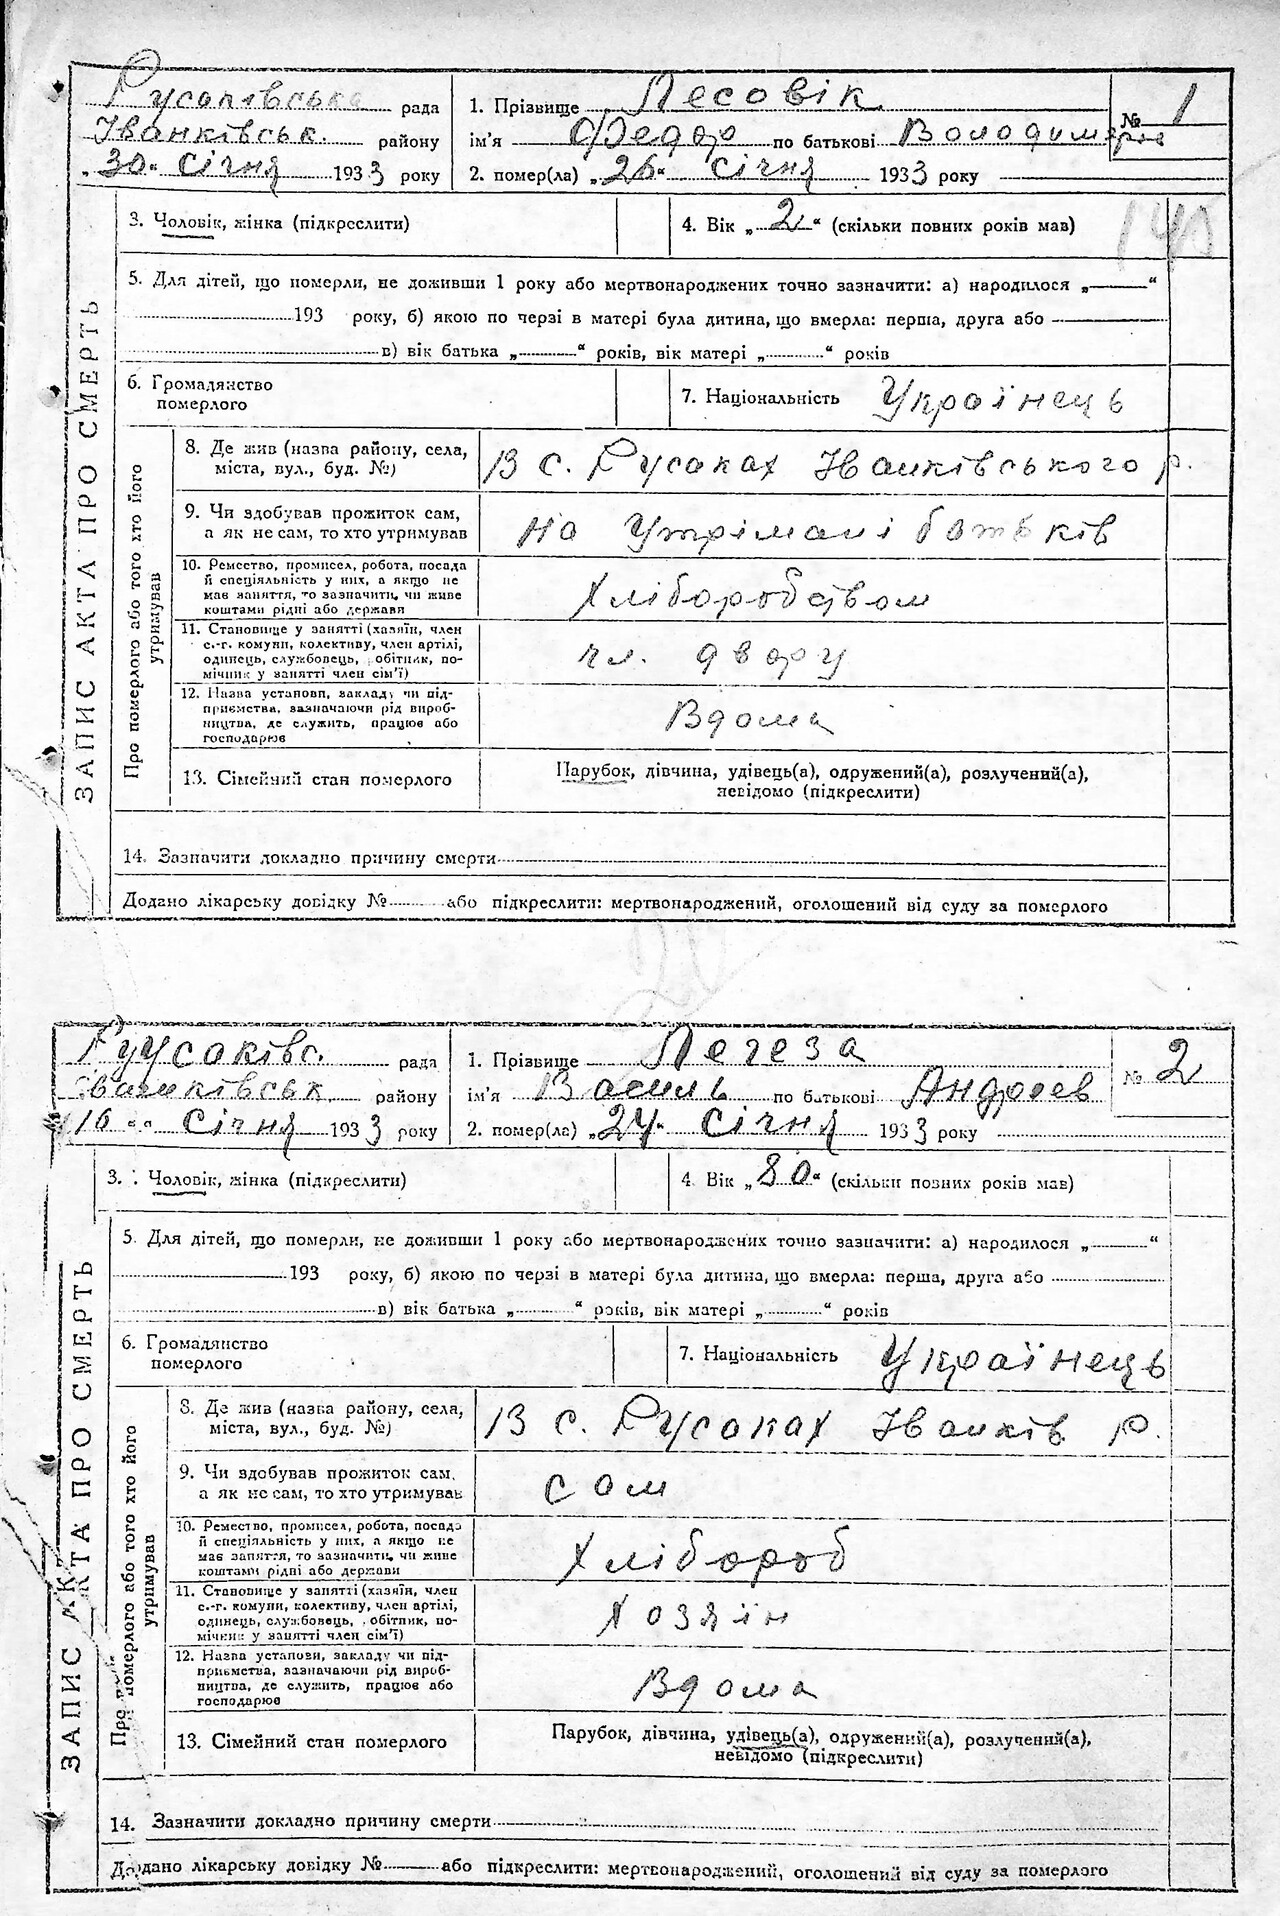 Русаківська рада
Іванківськ. району
„30“ Січня 1933 року
1. Прізвище Лесовік
ім'я Федор по батькові Володимиров
2. помер(ла) „26“ Січня 1933 року
№ 1
3. Чоловік, жінка (підкреслити)
4. Вік „2“ (скільки повних років мав)
145
5. Для дітей, що померли, не доживши 1 року або мертвонароджених точно зазначити: а) народилося „ “
193 року, б) якою по черзі в матері була дитина, що вмерла: перша, друга або
в) вік батька „ “ років, вік матері „ “ років
6. Громадянство
померлого
7. Національність Українець
ЗАПИС АКТА ПРО СМЕРТЬ
Про померлого або того хто його
утримував
8. Де жив (назва району, села,
міста, вул., буд. №)
В с. Русаках Іванківського р.
9. Чи здобував прожиток сам,
а як не сам, то хто утримував
на утрімані батьків
10. Ремество, промисел, робота, посада
й спеціяльність у них, а якщо не
має заняття, то зазначити, чи живе
коштами рідні або держави
Хліборобством
11. Становище у занятті (хазяїн, член
с.-г. комуни, колективу, член артілі,
одинець, службовець, обітник, по-
мічник у занятті член сім'ї)
чл. двору
12. Назва установи, закладу чи під-
приємства, зазначаючи рід вироб-
ництва, де служить, працює або
господарює
Вдома
13. Сімейний стан померлого
Парубок, дівчина, удівець(а), одружений(а), розлучений(а),
невідомо (підкреслити)
14. Зазначити докладно причину смерти
Додано лікарську довідку № або підкреслити: мертвонароджений, оголошений від суду за померлого
Русаківс. рада
Іванківськ району
16 „“ Січня 1933 року
1. Прізвище Легеза
ім'я Василь по батькові Андреев
2. помер(ла) „24“ Січня 1933 року
№ 2
3. Чоловік, жінка (підкреслити)
4. Вік „80“ (скільки повних років мав)
5. Для дітей, що померли, не доживши 1 року або мертвонароджених точно зазначити: а) народилося „ “
193 року, б) якою по черзі в матері була дитина, що вмерла: перша, друга або
в) вік батька „ “ років, вік матері „ “ років
6. Громадянство
померлого
7. Національність Українець
ЗАПИС АКТА ПРО СМЕРТЬ
Про померлого або того хто його
утримував
8. Де жив (назва району, села,
міста, вул., буд. №)
В с. Русаках Іванків р.
9. Чи здобував прожиток сам,
а як не сам, то хто утримував
сам
10. Ремество, промисел, робота, посада
й спеціяльність у них, а якщо не
має заняття, то зазначити, чи живе
коштами рідні або держави
Хлібороб
11. Становище у занятті (хазяїн, член
с.-г. комуни, колективу, член артілі,
одинець, службовець, обітник, по-
мічник у занятті член сім'ї)
Хозяін
12. Назва установи, закладу чи під-
приємства, зазначаючи рід вироб-
ництва, де служить, працює або
господарює
Вдома
13. Сімейний стан померлого
Парубок, дівчина, удівець(а), одружений(а), розлучений(а),
невідомо (підкреслити)
14. Зазначити докладно причину смерти
Додано лікарську довідку № або підкреслити: мертвонароджений, оголошений від суду за померлого